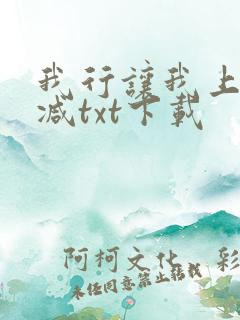 我行讓我上
减txt下載
阿柯文化 彩
未经同意禁止转载